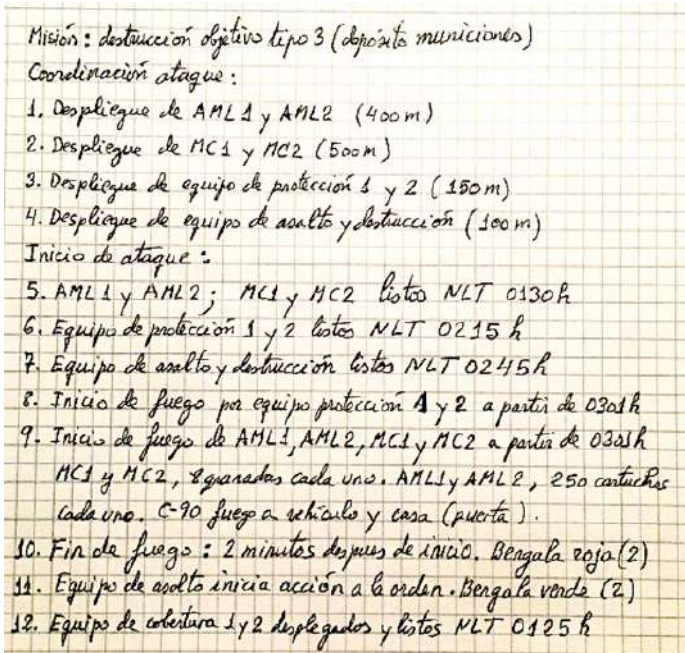 Misión: destrucción objetivo tipo 3 (depósito municiones)
Coordinación ataque:
1. Despliegue de AML1 y AML2 (400m)
2. Despliegue de MC1 y MC2 (500m)
3. Despliegue de equipo de protección 1 y 2 (150m)
4. Despliegue de equipo de asalto y destrucción (100m)
Inicio de ataque:
5. AML1 y AML2; MC1 y MC2 listos NLT 0130h
6. Equipo de protección 1 y 2 listos NLT 0215h
7. Equipo de asalto y destrucción listos NLT 0245h
8. Inicio de fuego por equipo protección 1 y 2 a partir de 0301h
9. Inicio de fuego de AML1, AML2, MC1 y MC2 a partir de 0301h
MC1 y MC2, 8 granadas cada uno. AML1 y AML2, 250 cartuchos
cada uno. C-90 fuego a vehículo y casa (puerta).
10. Fin de fuego: 2 minutos despues de inicio. Bengala roja (2)
11. Equipo de asalto inicia acción a la orden. Bengala verde (2)
12. Equipo de cobertura 1 y 2 desplegados y listos NLT 0125h